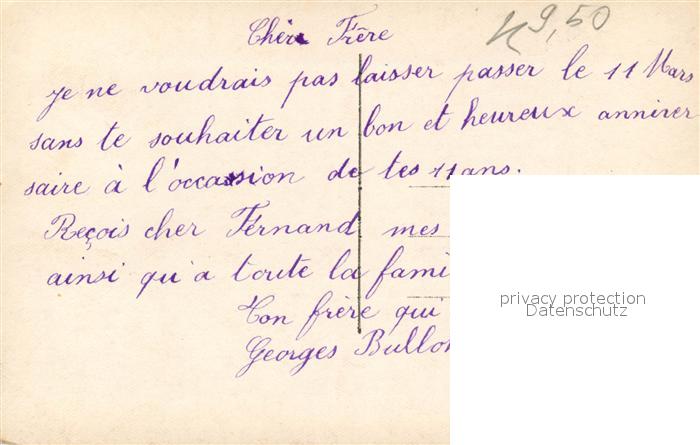 Chère Frère
9,50
Je ne voudrais pas laisser passer le 11 Mars
sans te souhaiter un bon et heureux anniver
saire à l'occasion de tes 11 ans.
Reçois cher Fernand mes
ainsi qu'a toute la fami
privacy protection
Datenschutz
Ton frère qui
Georges